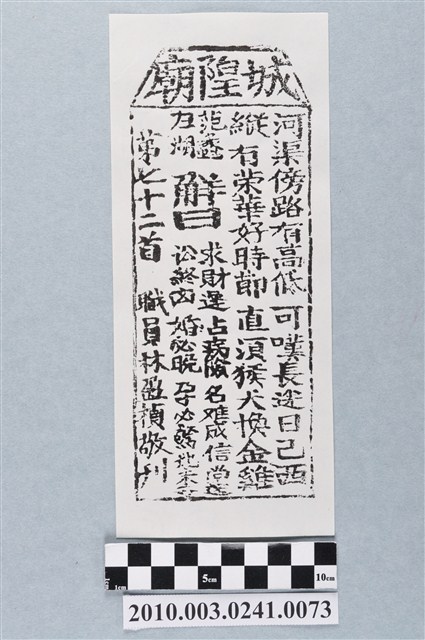 城隍廟
河渠傍路有高低 可嘆長途日已西
縱有荣華好時節 直須猴犬換金雞
范蠡
五湖
解曰
求財遲 占病險 名难成 信尚遠
讼終凶 婚必晚 孕必驚 地未
第七十二首 職員林盈禎敬刋
1cm 5cm 10cm
2010.003.0241.0073